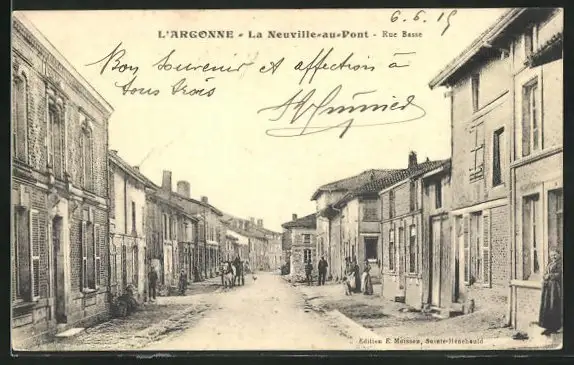 6.6.15
L'ARGONNE - La Neuville-au-Pont - Rue Basse
Bon Souvenir et affection à
tous trois
Edition E. Moisson, Sainte-Menehould